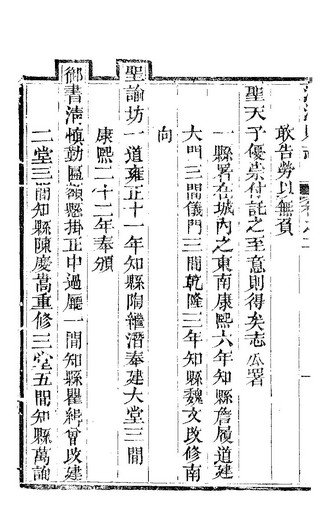 敢告勞以無負
聖天子優崇付託之至意則得矣志公署
一縣署在城內之東南康熙六年知縣詹履道建
大門三間儀門三間乾隆三年知縣魏文改修南
向
聖諭坊一道雍正十一年知縣陶繼潛奉建大堂三間
康熙二十二年奉頒
御書清慎勤匾額懸掛正中過廳一間知縣瞿緝曾改建
二堂三間知縣陳慶嵩重修三堂五間知縣萬詢